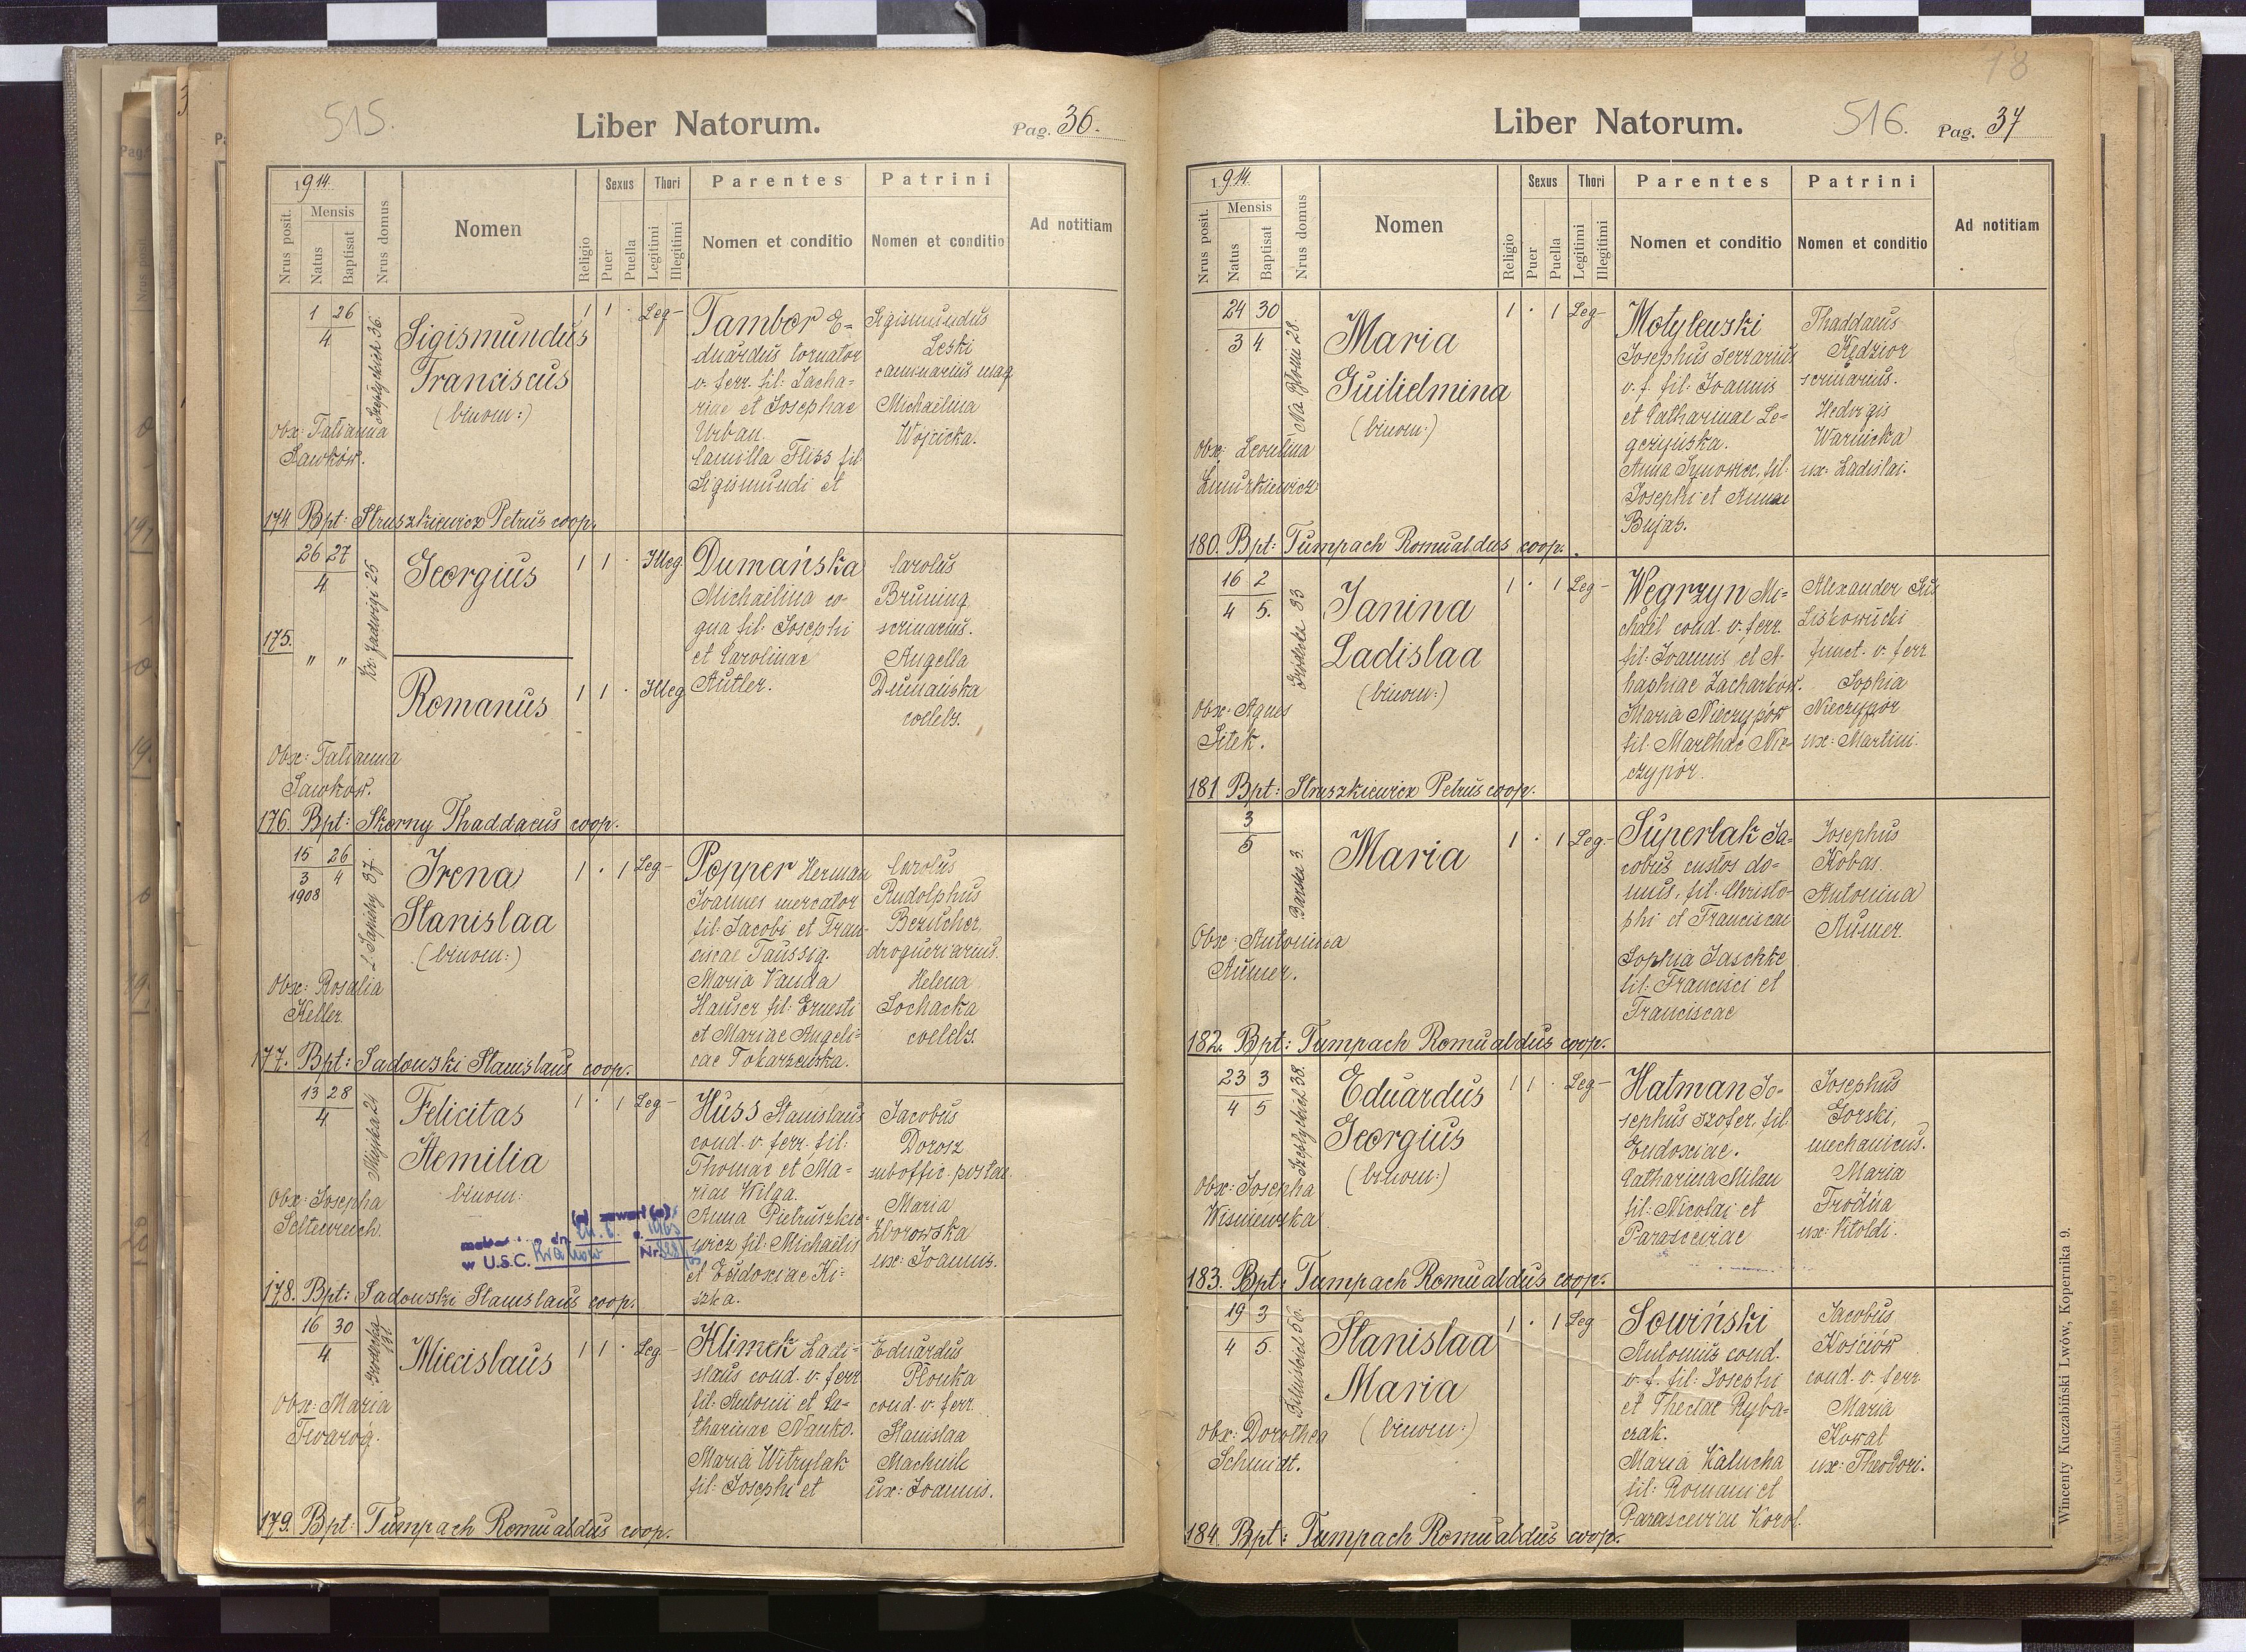 515.
Liber Natorum.
Pag. 36.
1914.
Nrus posit.
Mensis
Natus
Baptisat
Nrus domus
Nomen
Religio
Sexus
Puer
Puella
Thori
Legitimi
Illegitimi
Parentes
Nomen et conditio
Patrini
Nomen et conditio
Ad notitiam
1 26
4
Szeptyckich 36.
Sigismundus
Franciscus
(binom:)
1 1 · Leg-
Tambor E=
duardus tornator
v. ferr. fil: Zacha=
riae et Josephae
Urban.
Camilla Fliss fil
Sigismundi et
Sigismundus
Leski
Michaëlina
Wójcicka.
Obx: Tatianna
Sawków.
174 Bpt: Struszkiewicz Petrus coop.
26 27
4
Kr. Jadwigi 25
Georgius
1 1 · Illeg
Dumańska
Michaëlina co-
qua fil: Josephi
et Carolinae
Autler.
Carolus
Brüning
scrinarius.
Angella
Dumańska
coelebs.
175.
" "
Romanus
1 1 · Illeg
Obx: Tatianna
Sawków.
176. Bpt: Skorny Thaddaeus coop.
15 26
3 4
1908
L. Sapiehy 37.
Irena
Stanislaa
(binom:)
1 · 1 Leg-
Popper Herman
Joannes mercator
fil: Jacobi et Fran-
ciscae Taussig.
Maria Vanda
Hauser fil: Ernesti
et Mariae Angeli=
cae Tokarzewska.
Carolus
Rudolphus
Bezucher,
drogueriarius.
Helena
Sochacka
coelebs.
Obx: Rosalia
Keller.
177. Bpt: Sadowski Stanislaus coop.
13 28
4
24
Felicitas
Aemilia
binom:
1 · 1 Leg-
Huss Stanislaus
cond. v. ferr. fil:
Thomae et Ma=
riae Wilga.
Anna Pietruszkie=
wicz fil: Michaëlis
et Eudoxiae Ki=
szka.
Jacobus
Dorosz
suboffic. postal.
Maria
Zborowska
ux: Joannis.
Obx: Josepha
Seltenreich.
w U.S.C. Kraków Nr.
178. Bpt: Sadowski Stanislaus coop.
16 30
4
Grodecka
Miecislaus
1 1 · Leg-
Klimek Ladi=
slaus cond. v. ferr
fil: Antonii et Ca=
tharinae Nanko.
Maria Witrylak
fil: Josephi et
Eduardus
Plonka
cond. v. ferr.
Stanislaa
Machnik
ux: Joannis.
Obx: Maria
Twaróg.
179. Bpt: Tumpach Romualdus coop.
18
Liber Natorum.
516.
Pag. 37
1914.
Nrus posit.
Mensis
Natus
Baptisat
Nrus domus
Nomen
Religio
Sexus
Puer
Puella
Thori
Legitimi
Illegitimi
Parentes
Nomen et conditio
Patrini
Nomen et conditio
Ad notitiam
24 30
3 4.
Na Błonie 28.
Maria
Guilielmina
(binom:)
1 · 1 Leg-
Motylewski
Josephus serrarius
v. f. fil: Joannis
et Catharinae Le-
gczynska.
Anna Synowiec, fil:
Josephi et Annae
Bujas.
Thaddaeus
Kędzior
scrinarius.
Hedvigis
Warnicka
ux: Ladislai.
Obx: Leontina
Zmurkiewicz
180. Bpt: Tumpach Romualdus coop.
16 2
4 5.
Grodecka 93
Janina
Ladislaa
(binom:)
1 · 1 Leg-
Wegrzyn Mi=
chaël cond. v. ferr.
fil: Joannis et A-
naphiae Zacharków.
Maria Nieczypór
fil: Marthae Nie-
czypór.
Alexander
Liskowicki
funct. v. ferr
Sophia
Nieczypór
ux: Martini.
Obx: Agnes
Sitek.
181 Bpt: Struszkiewicz Petrus coop.
3
5
Barska 3.
Maria
1 · 1 Leg-
Superlak Ja=
cobus custos do=
mus, fil. Christo-
phi et Franciscae
Sophia Jaschke
fil: Francisci et
Franciscae
Josephus
Kobas.
Antonina
Aumer.
Obx: Antonina
Aumer.
182. Bpt: Tumpach Romualdus coop.
23 3
4 5
Szeptyckich 38.
Eduardus
Georgius
(binom:)
1 1 · Leg-
Hatman Jo=
sephus szofer, fil:
Eudoxiae.
Catharina Milan
fil: Nicolai et
Parasceviae
Josephus
Gorski,
mechanicus.
Maria
Trodina
ux: Vitoldi.
Obx: Josepha
Wisniewska
183. Bpt: Tumpach Romualdus coop.
19 3
4 5.
Stanislaa
Maria
(binom:)
1 · 1 Leg
Sowiński
Antonius cond.
v. f. fil: Josephi
et Theclae Ryba=
czak.
Maria Kalucha
fil: Romani et
Parasceviae Korol.
Jacobus
Kościów
cond. v. ferr.
Maria
Kowal
ux: Theodori.
Obx: Dorothea
Schmidt.
184. Bpt: Tumpach Romualdus coop.
Wincenty Kuczabiński Lwów, Kopernika 9.